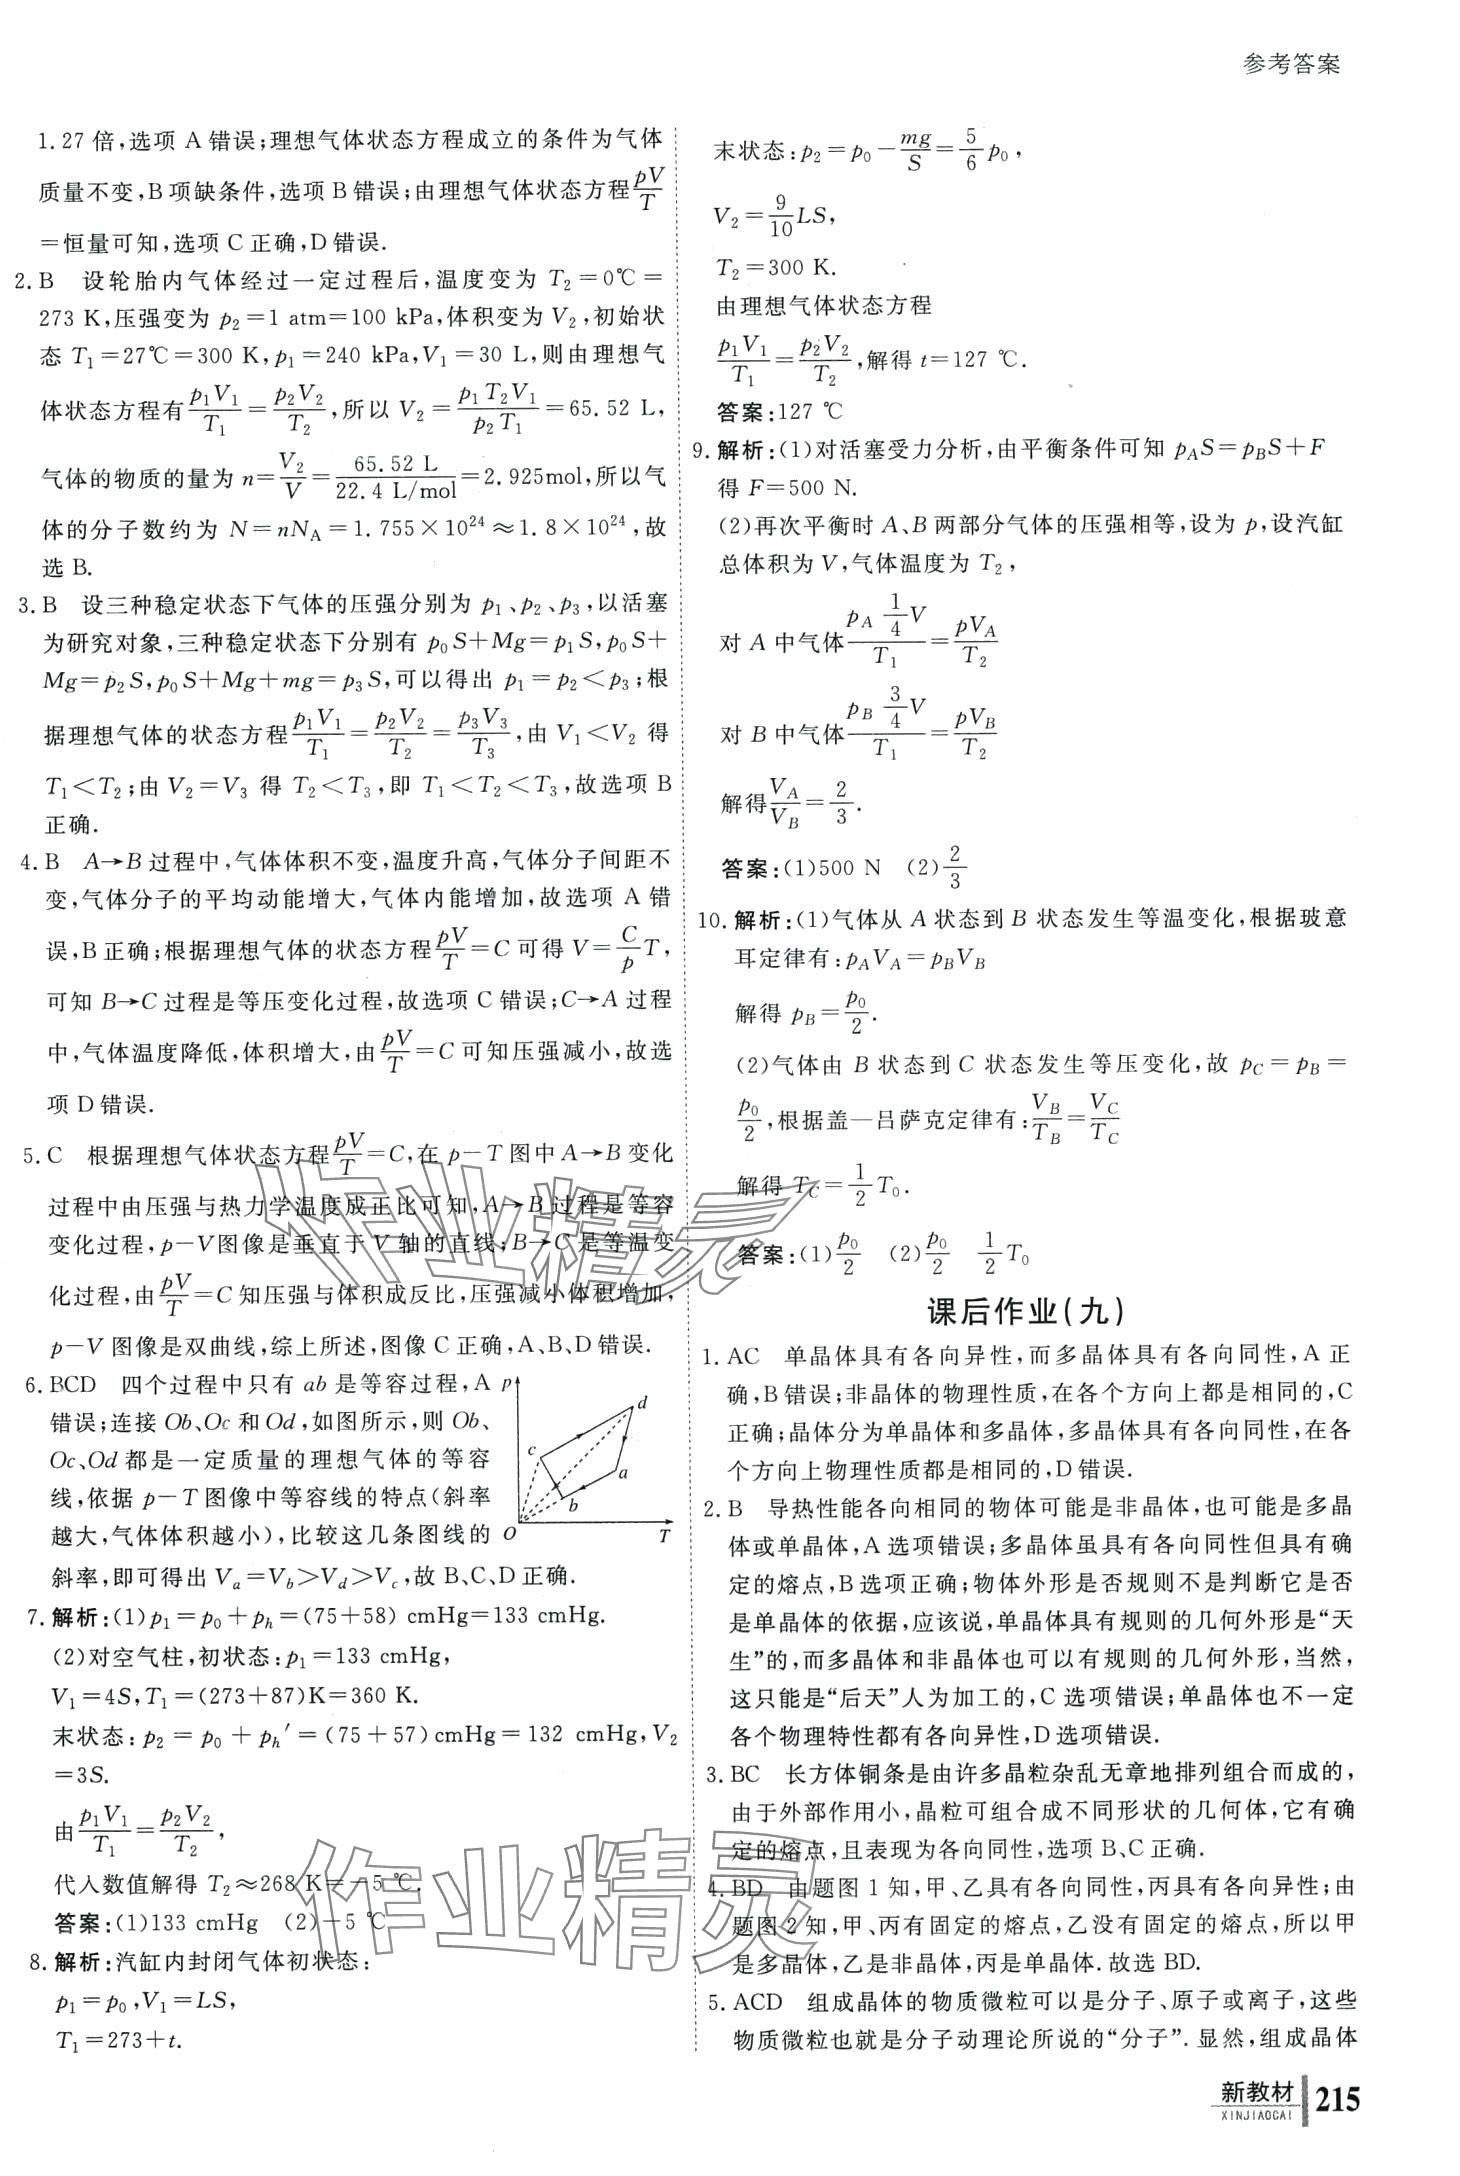 参考答案
1.27 倍,选项 A 错误;理想气体状态方程成立的条件为气体
质量不变,B 项缺条件,选项 B 错误;由理想气体状态方程 pV/T
=恒量可知,选项 C 正确,D 错误.
2. B 设轮胎内气体经过一定过程后,温度变为 T₂=0℃=
273 K,压强变为 p₂=1 atm=100 kPa,体积变为 V₂,初始状
态 T₁=27℃=300 K,p₁=240 kPa,V₁=30 L,则由理想气
体状态方程有 p₁V₁/T₁=p₂V₂/T₂,所以 V₂=p₁T₂V₁/p₂T₁=65.52 L,
气体的物质的量为 n=V₂/V=65.52 L/22.4 L/mol=2.925mol,所以气
体的分子数约为 N=nN_A=1.755×10²⁴≈1.8×10²⁴,故
选 B.
3. B 设三种稳定状态下气体的压强分别为 p₁、p₂、p₃,以活塞
为研究对象,三种稳定状态下分别有 p₀S+Mg=p₁S,p₀S+
Mg=p₂S,p₀S+Mg+mg=p₃S,可以得出 p₁=p₂<p₃;根
据理想气体的状态方程 p₁V₁/T₁=p₂V₂/T₂=p₃V₃/T₃,由 V₁<V₂ 得
T₁<T₂;由 V₂=V₃ 得 T₂<T₃,即 T₁<T₂<T₃,故选项 B
正确.
4. B A→B 过程中,气体体积不变,温度升高,气体分子间距不
变,气体分子的平均动能增大,气体内能增加,故选项 A 错
误,B 正确;根据理想气体的状态方程 pV/T=C 可得 V=C/p T,
可知 B→C 过程是等压变化过程,故选项 C 错误;C→A 过程
中,气体温度降低,体积增大,由 pV/T=C 可知压强减小,故选
项 D 错误.
5. C 根据理想气体状态方程 pV/T=C,在 p-T 图中 A→B 变化
过程中由压强与热力学温度成正比可知,A→B 过程是等容
变化过程,p-V 图像是垂直于 V 轴的直线;B→C 是等温变
化过程,由 pV/T=C 知压强与体积成反比,压强减小体积增加,
p-V 图像是双曲线,综上所述,图像 C 正确,A、B、D 错误.
6. BCD 四个过程中只有 ab 是等容过程,A
错误;连接 Ob、Oc 和 Od,如图所示,则 Ob、
Oc、Od 都是一定质量的理想气体的等容
线,依据 p-T 图像中等容线的特点(斜率
越大,气体体积越小),比较这几条图线的
斜率,即可得出 V_a=V_b>V_d>V_c,故 B、C、D 正确.
p
d
c
a
b
O
T
7. 解析:(1)p₁=p₀+p_h=(75+58) cmHg=133 cmHg.
(2)对空气柱,初状态:p₁=133 cmHg,
V₁=4S,T₁=(273+87)K=360 K.
末状态:p₂=p₀+p_h′=(75+57)cmHg=132 cmHg,V₂
=3S.
由 p₁V₁/T₁=p₂V₂/T₂,
代入数值解得 T₂≈268 K=-5 ℃.
答案:(1)133 cmHg (2)-5 ℃
8. 解析:汽缸内封闭气体初状态:
p₁=p₀,V₁=LS,
T₁=273+t.
末状态:p₂=p₀-mg/S=5/6 p₀,
V₂=9/10 LS,
T₂=300 K.
由理想气体状态方程
p₁V₁/T₁=p₂V₂/T₂,解得 t=127 ℃.
答案:127 ℃
9. 解析:(1)对活塞受力分析,由平衡条件可知 p_AS=p_BS+F
得 F=500 N.
(2)再次平衡时 A、B 两部分气体的压强相等,设为 p,设汽缸
总体积为 V,气体温度为 T₂,
对 A 中气体 p_A 1/4 V/T₁=pV_A/T₂
对 B 中气体 p_B 3/4 V/T₁=pV_B/T₂
解得 V_A/V_B=2/3.
答案:(1)500 N (2)2/3
10. 解析:(1)气体从 A 状态到 B 状态发生等温变化,根据玻意
耳定律有:p_AV_A=p_BV_B
解得 p_B=p₀/2.
(2)气体由 B 状态到 C 状态发生等压变化,故 p_C=p_B=
p₀/2,根据盖—吕萨克定律有:V_B/T_B=V_C/T_C
解得 T_C=1/2 T₀.
答案:(1)p₀/2 (2)p₀/2 1/2 T₀
课后作业(九)
1. AC 单晶体具有各向异性,而多晶体具有各向同性,A 正
确,B 错误;非晶体的物理性质,在各个方向上都是相同的,C
正确;晶体分为单晶体和多晶体,多晶体具有各向同性,在各
个方向上物理性质都是相同的,D 错误.
2. B 导热性能各向相同的物体可能是非晶体,也可能是多晶
体或单晶体,A 选项错误;多晶体虽具有各向同性但具有确
定的熔点,B 选项正确;物体外形是否规则不是判断它是否
是单晶体的依据,应该说,单晶体具有规则的几何外形是“天
生”的,而多晶体和非晶体也可以有规则的几何外形,当然,
这只能是“后天”人为加工的,C 选项错误;单晶体也不一定
各个物理特性都有各向异性,D 选项错误.
3. BC 长方体铜条是由许多晶粒杂乱无章地排列组合而成的,
由于外部作用小,晶粒可组合成不同形状的几何体,它有确
定的熔点,且表现为各向同性,选项 B、C 正确.
4. BD 由题图 1 知,甲、乙具有各向同性,丙具有各向异性;由
题图 2 知,甲、丙有固定的熔点,乙没有固定的熔点,所以甲
是多晶体,乙是非晶体,丙是单晶体.故选 BD.
5. ACD 组成晶体的物质微粒可以是分子、原子或离子,这些
物质微粒也就是分子动理论所说的“分子”.显然,组成晶体
作业精灵
作业精灵
新教材
XINJIAOCAI
215